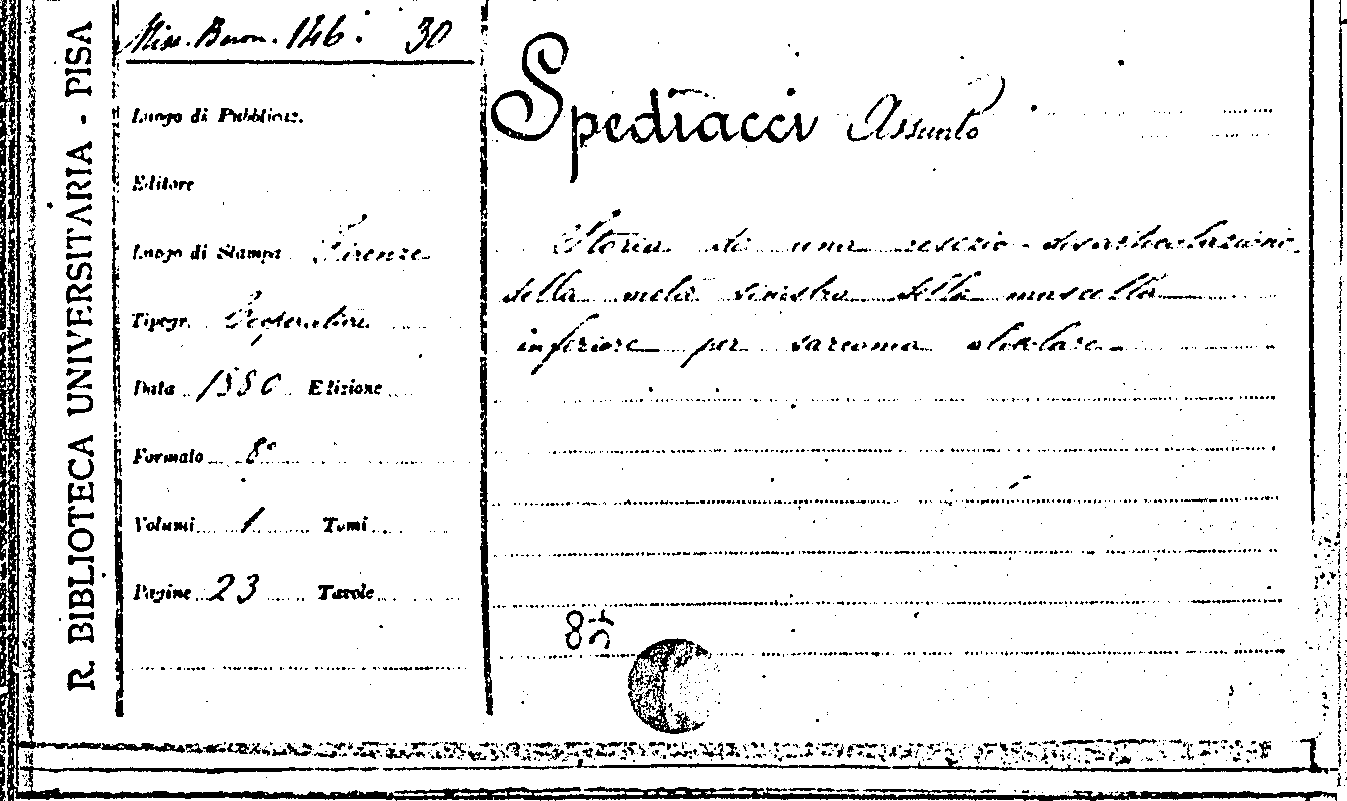 R. BIBLIOTECA UNIVERSITARIA - PISA
Misc. Baron. 146. 30
Luogo di Pubblicaz.
Editore
Luogo di Stampa Firenze
Tipogr. Cooperativa
Data 1880 Edizione
Formato 8°
Volumi 1 Tomi
Pagine 23 Tavole
Spediacci Assunto
Storia di una resezio-disarticolazione
della metà sinistra della mascella
inferiore per sarcoma